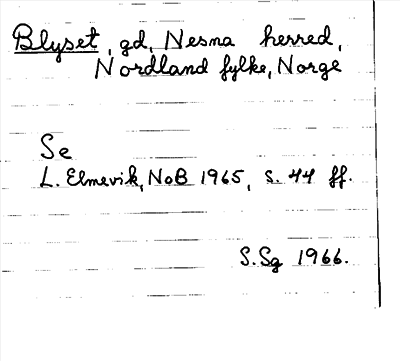 Blyset, gd, Nesna herred,
Nordland fylke, Norge
Se
L. Elmevik, NoB 1965, s. 44 ff.
S.Sg 1966.